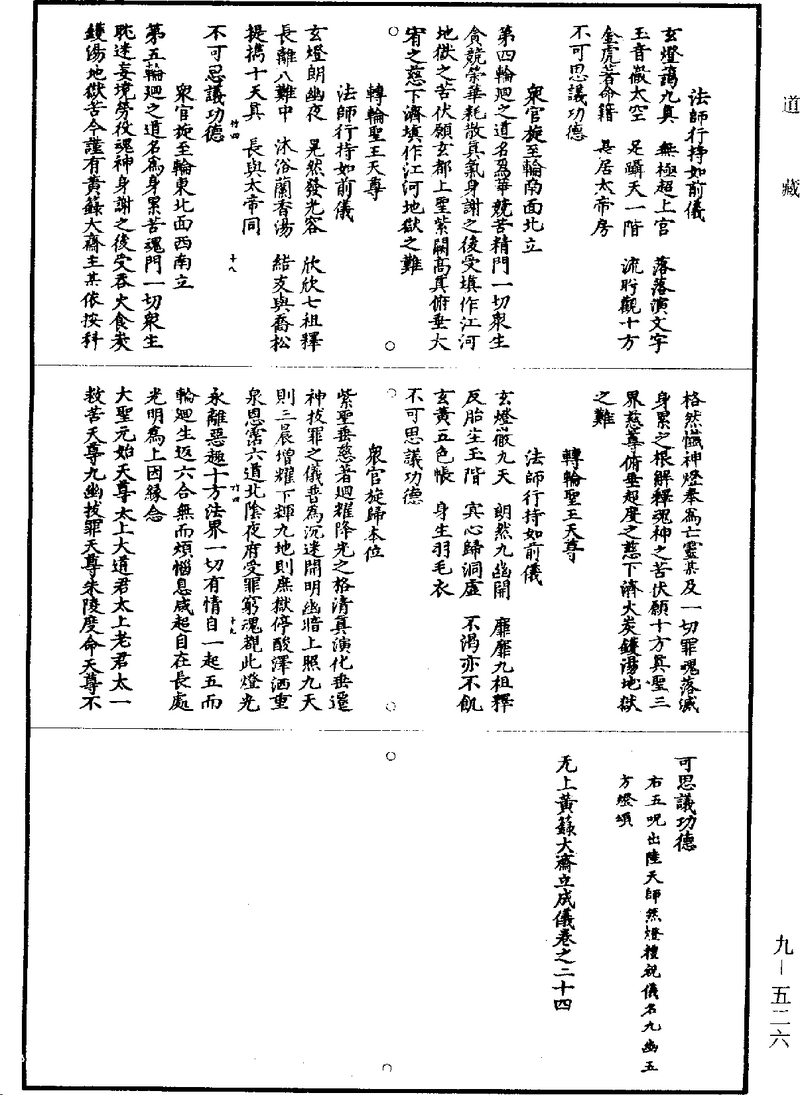 道藏
法師行持如前儀
玄燈蕩九真　無極超上宫　落落演文字
玉音徹太空　足躡天一階　流眄觀十方
金虎著命籍　甚居太帝房
不可思議功德
衆官旋至輪南面北立
第四輪迴之道名爲華競苦精門一切衆生
貪競榮華耗散真氣身謝之後受填作江河
地獄之苦伏願玄都上聖紫闕高真俯垂大
宥之慈下濟填作江河地獄之難
轉輪聖王天尊
法師行持如前儀
玄燈朗幽夜　晃然發光容　欣欣七祖釋
長離八難中　沐浴蘭香湯　結友與喬松
提擕十天真　長與太帝同
不可思議功德
竹四
十八
衆官旋至輪東北面西南立
第五輪迴之道名爲身累苦魂門一切衆生
耽迷妄境勞役魂神身謝之後受吞火食炭
鑊湯地獄苦今謹有黃籙大齋主某依按科
格然懺神燈奉爲亡靈某及一切罪魂落滅
身累之根解釋魂神之苦伏願十方真聖三
界慈尊俯垂起度之慈下濟火炭鑊湯地獄
之難
轉輪聖王天尊
法師行持如前儀
玄燈徹九天　朗然九幽開　靡靡九祖釋
反胎生玉階　冥心歸洞虚　不渴亦不飢
玄黃五色帳　身生羽毛衣
不可思議功德
衆官旋歸本位
紫聖垂慈著迴耀降光之格清真演化垂遷
神拔罪之儀普爲沉迷開明幽暗上照九天
則三晨增耀下輝九地則庶獄停酸澤洒重
泉恩霑六道北陰夜府受罪窮魂覩此燈光
竹四
十九
永離惡趣十方法界一切有情自一起五而
輪迴生返六合無而煩惱息咸超自在長處
光明爲上因緣念
大聖元始天尊太上大道君太上老君太一
救苦天尊九幽拔罪天尊朱陵度命天尊不
可思議功德
右五呪出陸天師然燈禮祝儀名九幽五
方燈頌
无上黃籙大齋立成儀卷之二十四
九－五二六